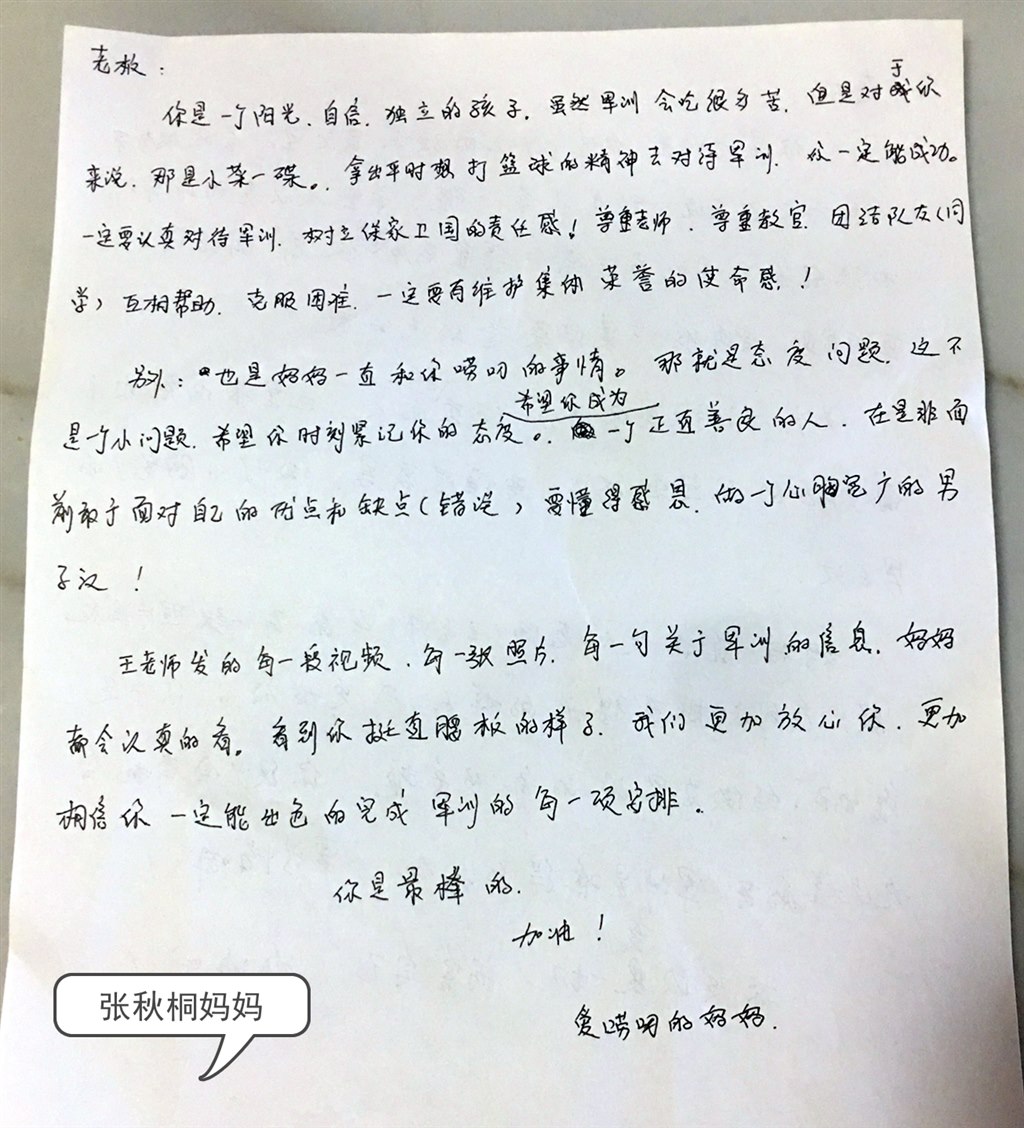 老板：
你是一个阳光、自信、独立的孩子。虽然军训会吃很多苦，但是对于你
来说，那是小菜一碟。拿出平时想打篮球的精神去对待军训，你一定能成功。
一定要认真对待军训，树立保家卫国的责任感！尊重老师、尊重教官，团结队友（同
学）互相帮助，克服困难，一定要有维护集体荣誉的使命感！
另外：也是妈妈一直和你唠叨的事情。那就是态度问题，这不
是一个小问题，希望你时刻紧记你的态度。希望你成为一个正直善良的人，在是非面
前敢于面对自己的优点和缺点（错误）要懂得感恩，做一个心胸宽广的男
子汉！
王老师发的每一段视频、每一张照片，每一句关于军训的信息，妈妈
都会认真的看。看到你挺直腰板的样子，我们更加放心你，更加
相信你一定能出色的完成军训的每一项安排。
你是最棒的.
加油！
爱唠叨的妈妈.
张秋桐妈妈